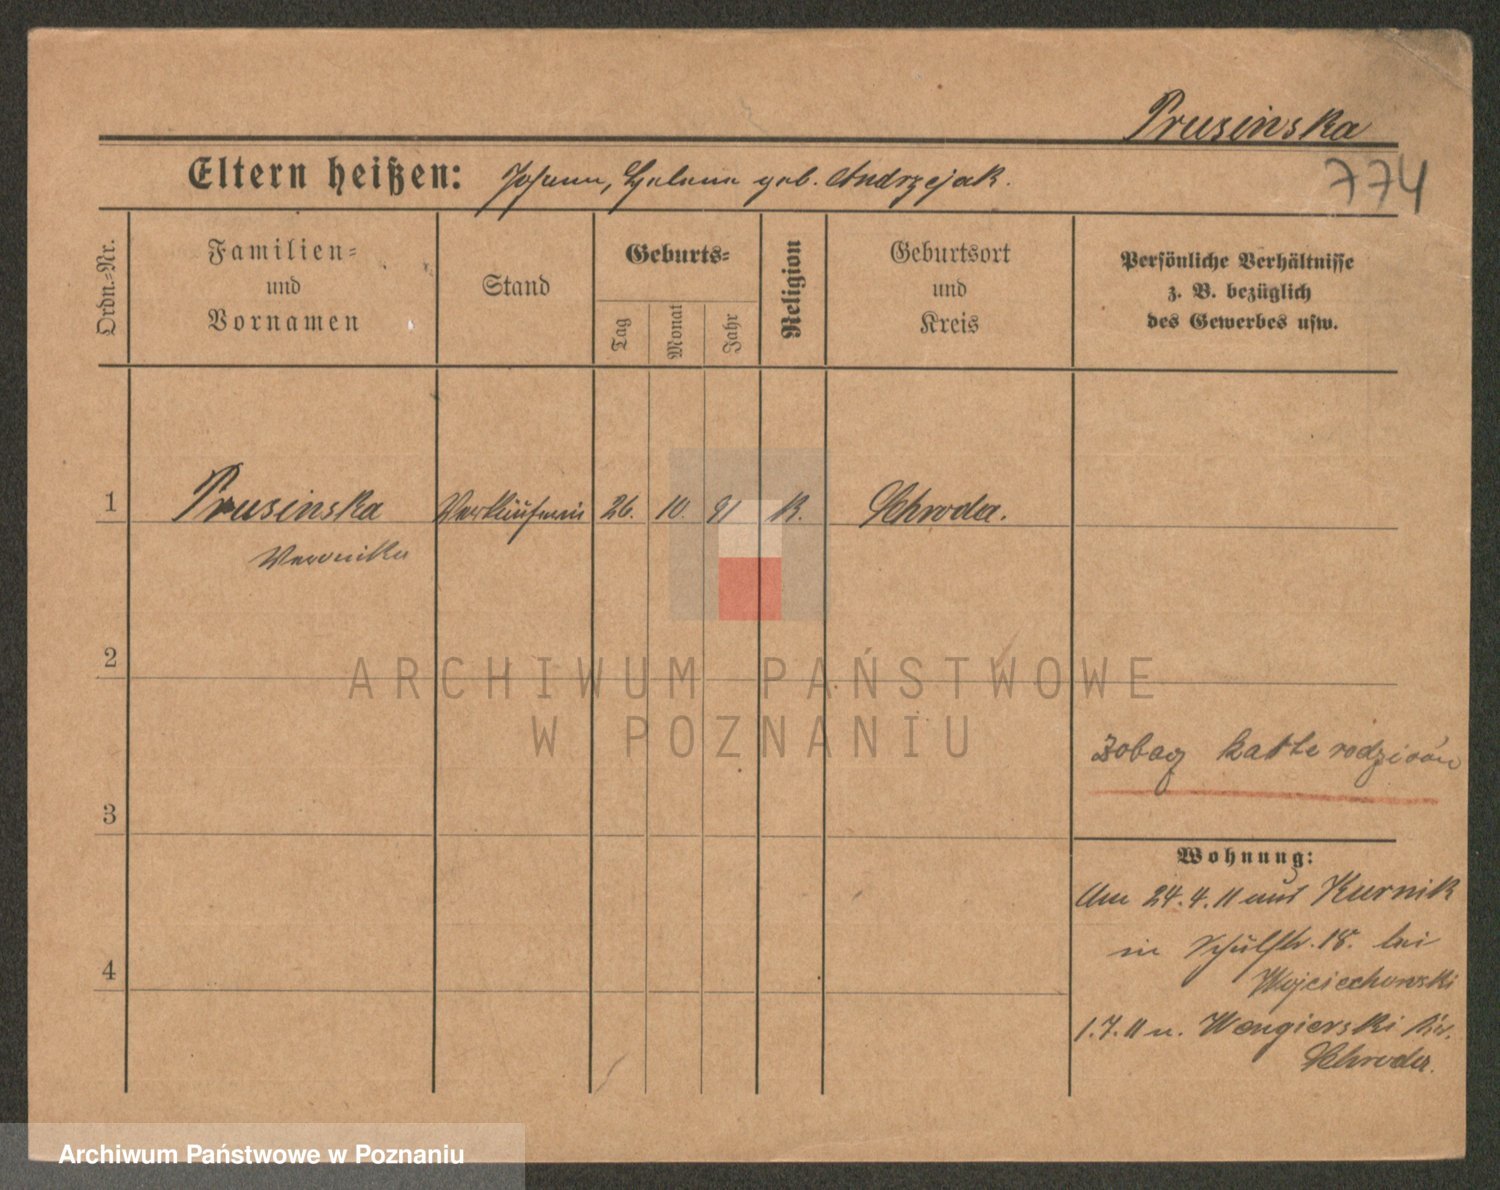 Prusinska
774
Eltern heißen: Johann, Helena geb. Andrzejak.
Ordn.-Nr.
Familien-
und
Vornamen
Stand
Geburts-
Tag
Monat
Jahr
Religion
Geburtsort
und
Kreis
Persönliche Verhältnisse
z. B. bezüglich
des Gewerbes usw.
1 Prusinska Verkäuferin 26. 10. 91 K. Schroda.
Veronika
2
ARCHIWUM PAŃSTWOWE
W POZNANIU
Zobacz kartę rodziców
3
Wohnung:
Am 24.4.11 aus Kurnik
in Schulstr. 18. bei
Wojciechowski
4
1.7.11 n. Wengierski Kr.
Schroda.
Archiwum Państwowe w Poznaniu